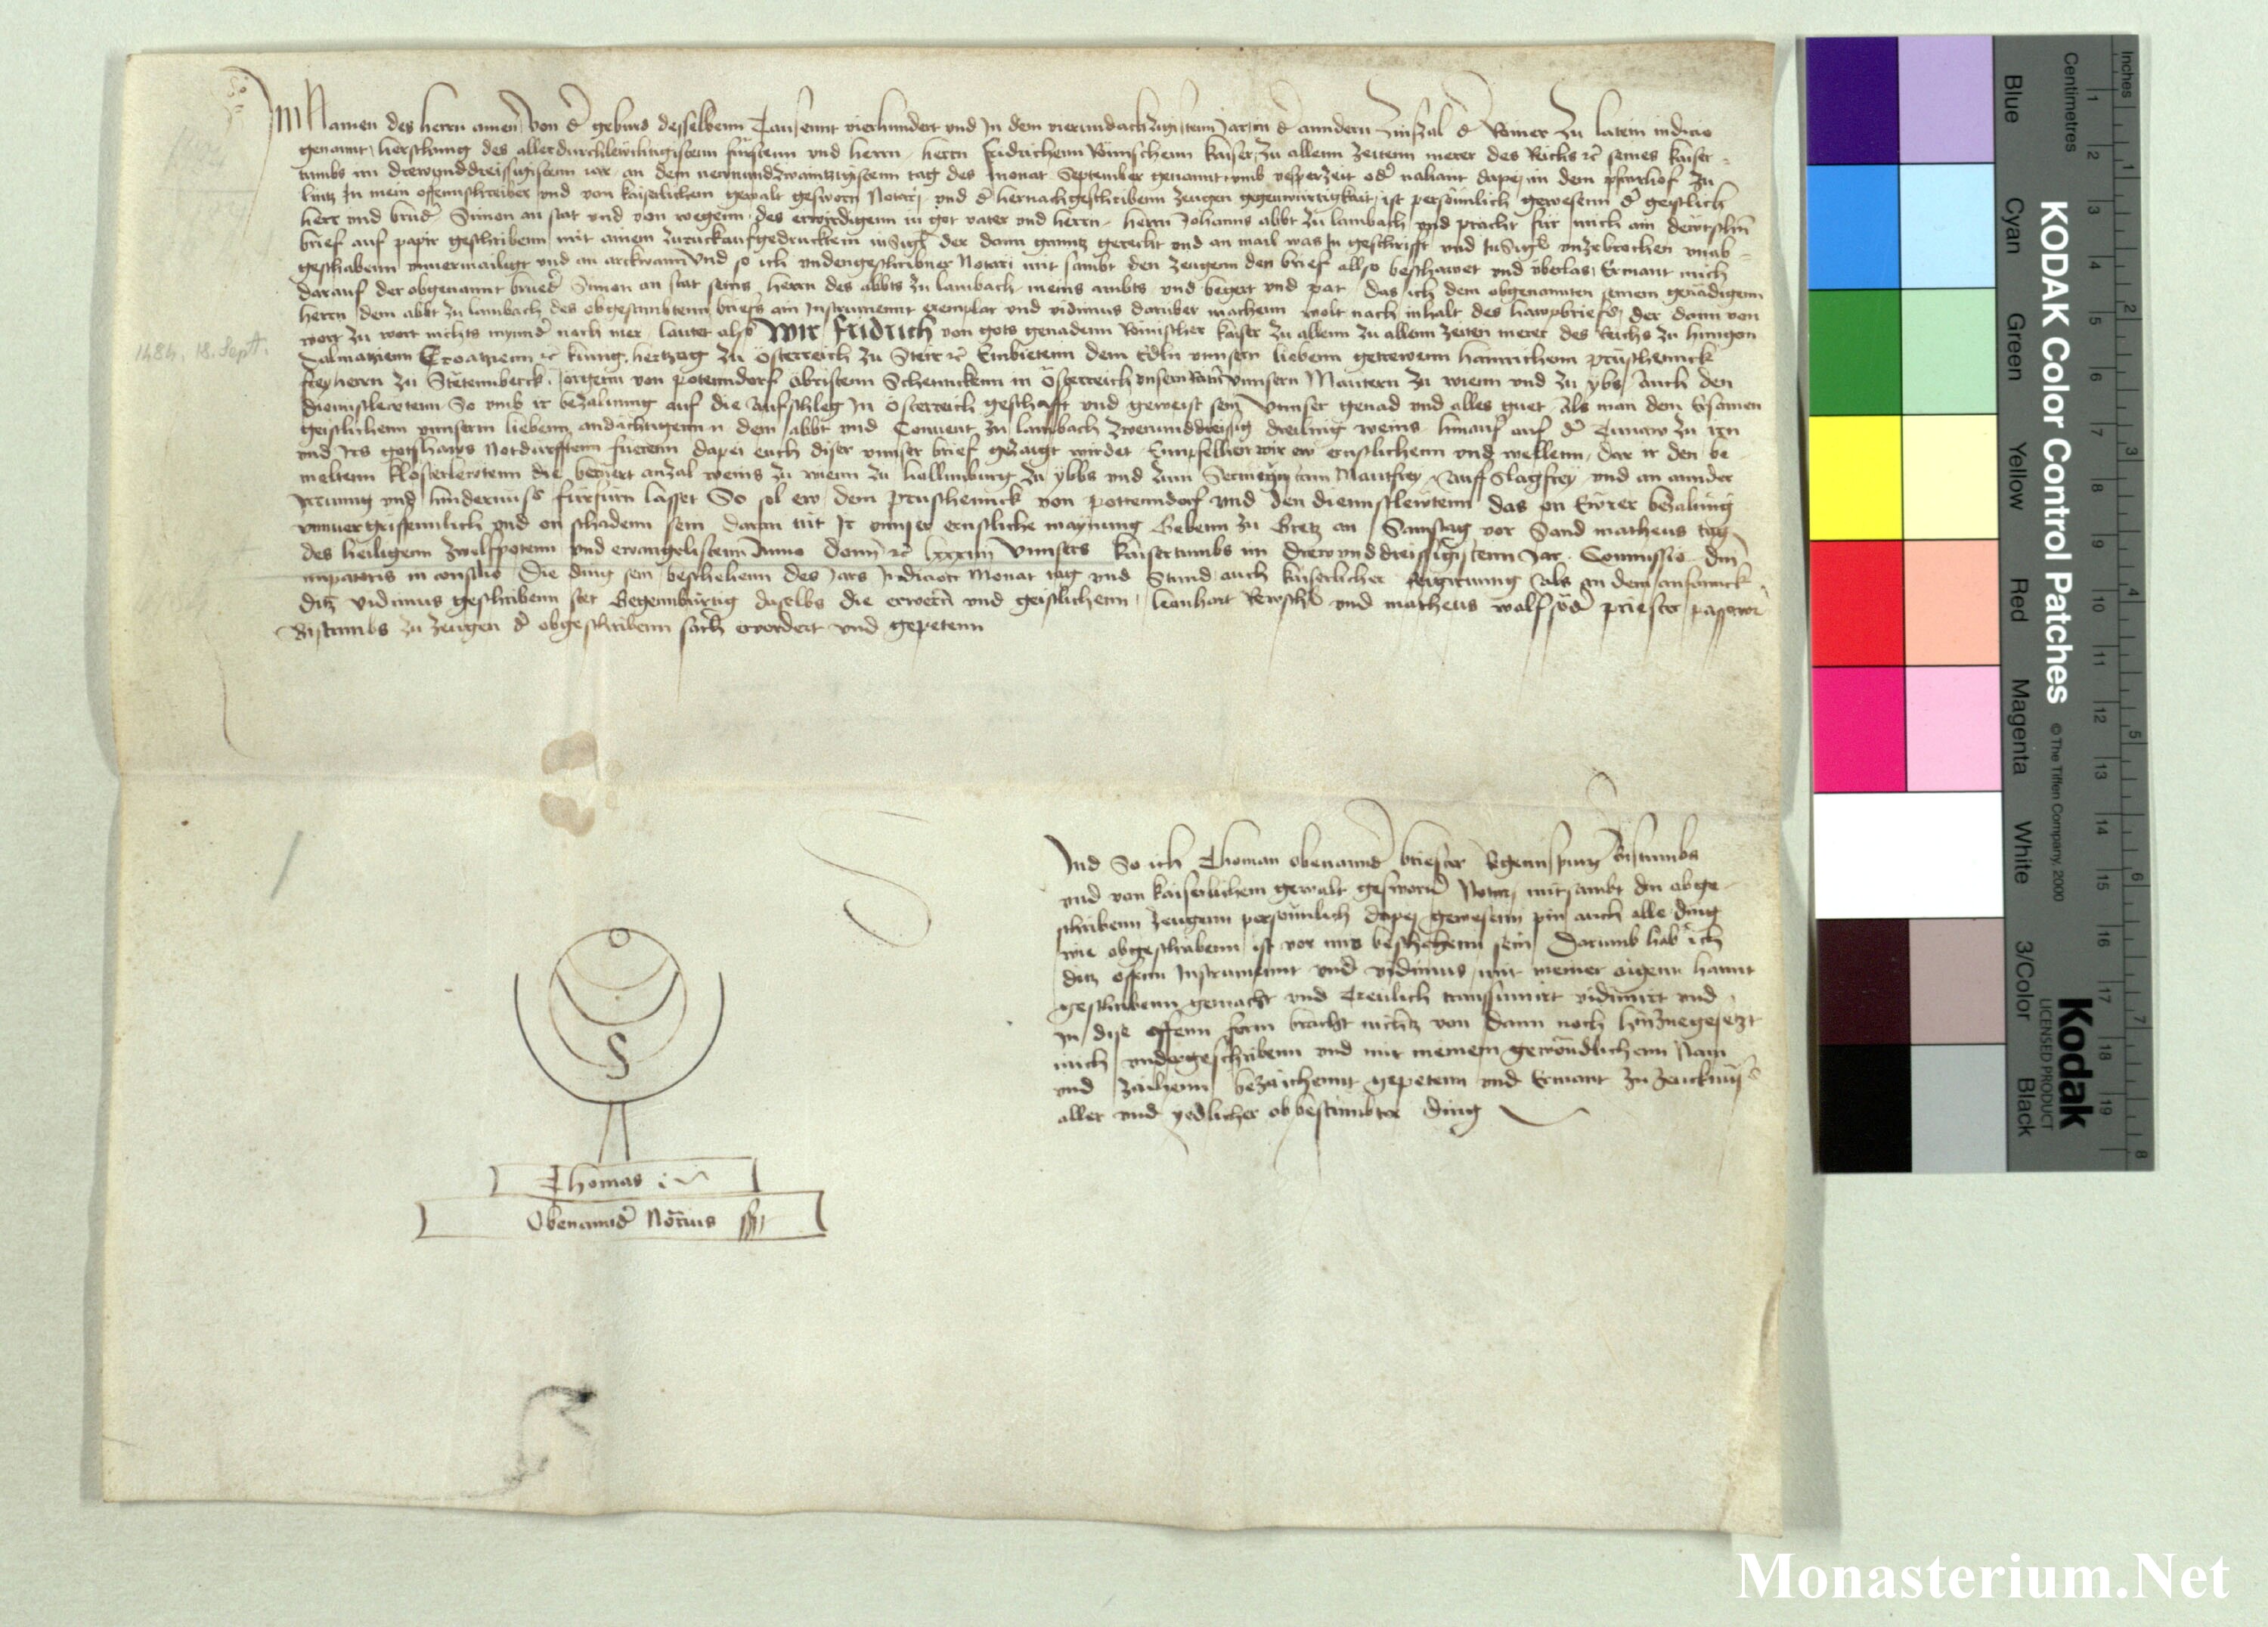 Im Namen des herrn amen Von d' geburd desselbenn Tausennt vierhundert und In dem vierundachzigistenn Jar in d' anndern Zinszal d' Romer zu latein indictio
genannt, herschung des allerdurchleuchtigistenn fürstenn und herrn, herrn fridrichenn Römischenn kaiser, zu allenn zeitenn merer des Reichs rc seines kaiser-
tumbs im drewunddreissigistenn iar, an dem newnundzwaintzigistenn tag des monat September genannt, umb vesperzeit od' nahant dapey, in dem pfarrhof zu
lintz In mein offennschreiber und von kaiserlichem gewalt gesworn Notarj, und d' hernachgeschribenn zeugen gegenwurtigkait, ist personnlich gewesenn d' geistlich
herr und brud' Simon an stat und von wegenn, des erwirdigenn in got vater und herrn, herrn Johanns abbt zu lambach, und pracht für mich ain dewtschn
brief auf papir geschribenn, mit ainem zuruckaufgedrucktem insigl der dann ganntz gerecht und an mail was In geschrifft und Insigl unzebrochen unab-
geschabenn unvermailigt und an arckwann Und so ich undengeschribner Notari mit sambt den zeugenn den brief allso beschawet und uberlas, Ermant mich
darauf der obgenannt brued' Simon an stat seins herrn des abbts zu lambach, meins ambts und begert und pat, das ich dem obgenannten seinem genädigenn
herrn dem abbt zu lambach des obgestimbtenn briefs ain Instrumennt exemplar und vidimus daruber machenn wolt nach inhalt des hawpbriefs, der dann von
wort zu wort nichts mynnd' nach mer, lautet also Wir fridrich von gots genadenn Römischer kaiser zu allenn zu allenn zeiten merer des Reichs zu hungern
1484, 18. Sept.
Dalmatienn Croatienn rc kunig, hertzog zu Österreich zu Steir rc Embietenn dem Edln unnsern liebenn getrewenn hainrichenn prüschennck
freyherrn zu Stettennberck, Jorgenn von potenndorf obristenn Schennckenn in Österreich unsern Rätn unnsern Mautern zu wienn und zu ybs, auch den
diennstlewtenn, So umb ir bezalunng auf die aufschleg In Österreich geschafft und geweist sein Unnser genad und alles guet, Als man dem Ersamen
geistlichenn unnserm liebenn andächtigenn n dem abbt und Convent zu lambach zwenunddreissig dreiling weins hinauf auf d' Tunaw zu irn
und Irs gotshaws Notdurfftenn fuerenn dapei euch diser unnser brief gezaigt wirdet, Empfelhen wir ew ernstlichenn und wellenn, daz ir den be-
meltenn klosterlewtenn die berürt anzal weins zu wienn zu hollnburg zu ybbs und zum Sermingstain Mautfrey, Auffslagfrey und an annder
Irrunng und hindernuss fürfürn lasset So sol ew, dem prüschennck von pottenndorf und den diennstlewtenn das an Ewrer bezalung
unnvergriffennlich und on schadenn sein, daran tut Ir unnser ernstliche maynung Gebenn zu Gretz an Samstag vor Sand matheus tag
des heiligenn zwelfpotenn und ewangelistenn Anno domi rc lxxxiiii Unnsers kaisertumbs im drewunddreissigistenn Jar. Commissio dni
imperatoris in consilio Die ding sein beschehenn des Jars Indiction Monat tag und Stund auch kaiserlicher regirunng Als an dem anfannck
ditz vidimus geschribenn stet Gegennburtig daselbs die erwern und geistlichenn, leonhart Rewschl und matheus wolfsöd' priester passawer
Bistumbs zu zeugen d' obgeschribenn sach ervordert und gepetenn
Und So ich Thoman obenannd' briester Regennspurg' Bistumbs
und von kaiserlichem gewalt gesworn' Notarj mitsambt den obge-
schribenn zeugenn personnlich dapej gewesenn pin auch alle ding
wie obgeschribenn ist vor mir beschehenn sein Darumb hab ich
ditz offenn Instrumennt und vidimus mit meiner aigenn hannt
geschribenn gemacht und Trewlich transsumirt vidimirt und
in dise offenn form bracht nichtz von dann noch hinzuegesetzt
mich undergeschribenn und mit meinem gewondlichenn Nam
und Zaihenn bezaichennt gepetenn und Ermant zu zeucknuss
aller und yedlicher obbestimbter ding
S
Thomas
Obenannd' Notarius sst
KODAK Color Control Patches
© The Tiffen Company, 2000
Kodak
LICENSED PRODUCT
Inches 1 2 3 4 5 6 7 8
Centimetres 1 2 3 4 5 6 7 8 9 10 11 12 13 14 15 16 17 18 19
Blue Cyan Green Yellow Red Magenta White 3/Color Black
Monasterium.Net